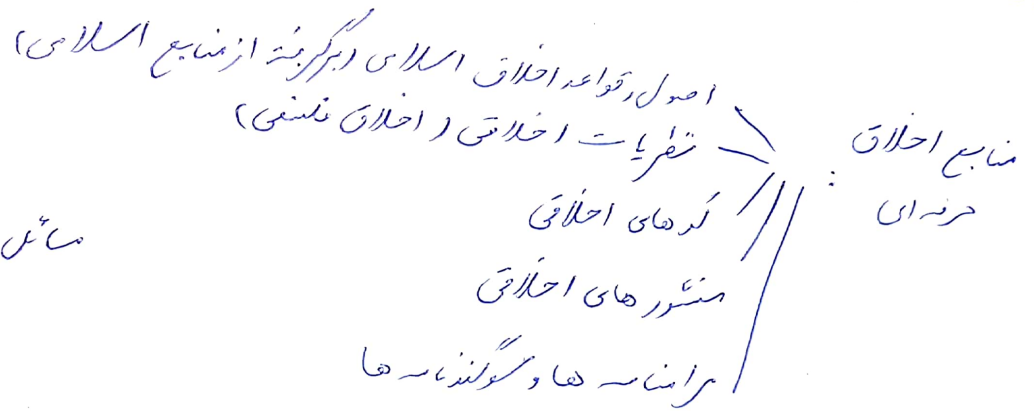 منابع اخلاق حرفه ای :
اصول و قواعد اخلاق اسلامی (برگرفته از منابع اسلامی)
نظریات اخلاقی (اخلاق فلسفی)
کدهای اخلاقی
منشورهای اخلاقی
مرامنامه ها و سوگندنامه ها
مسائل